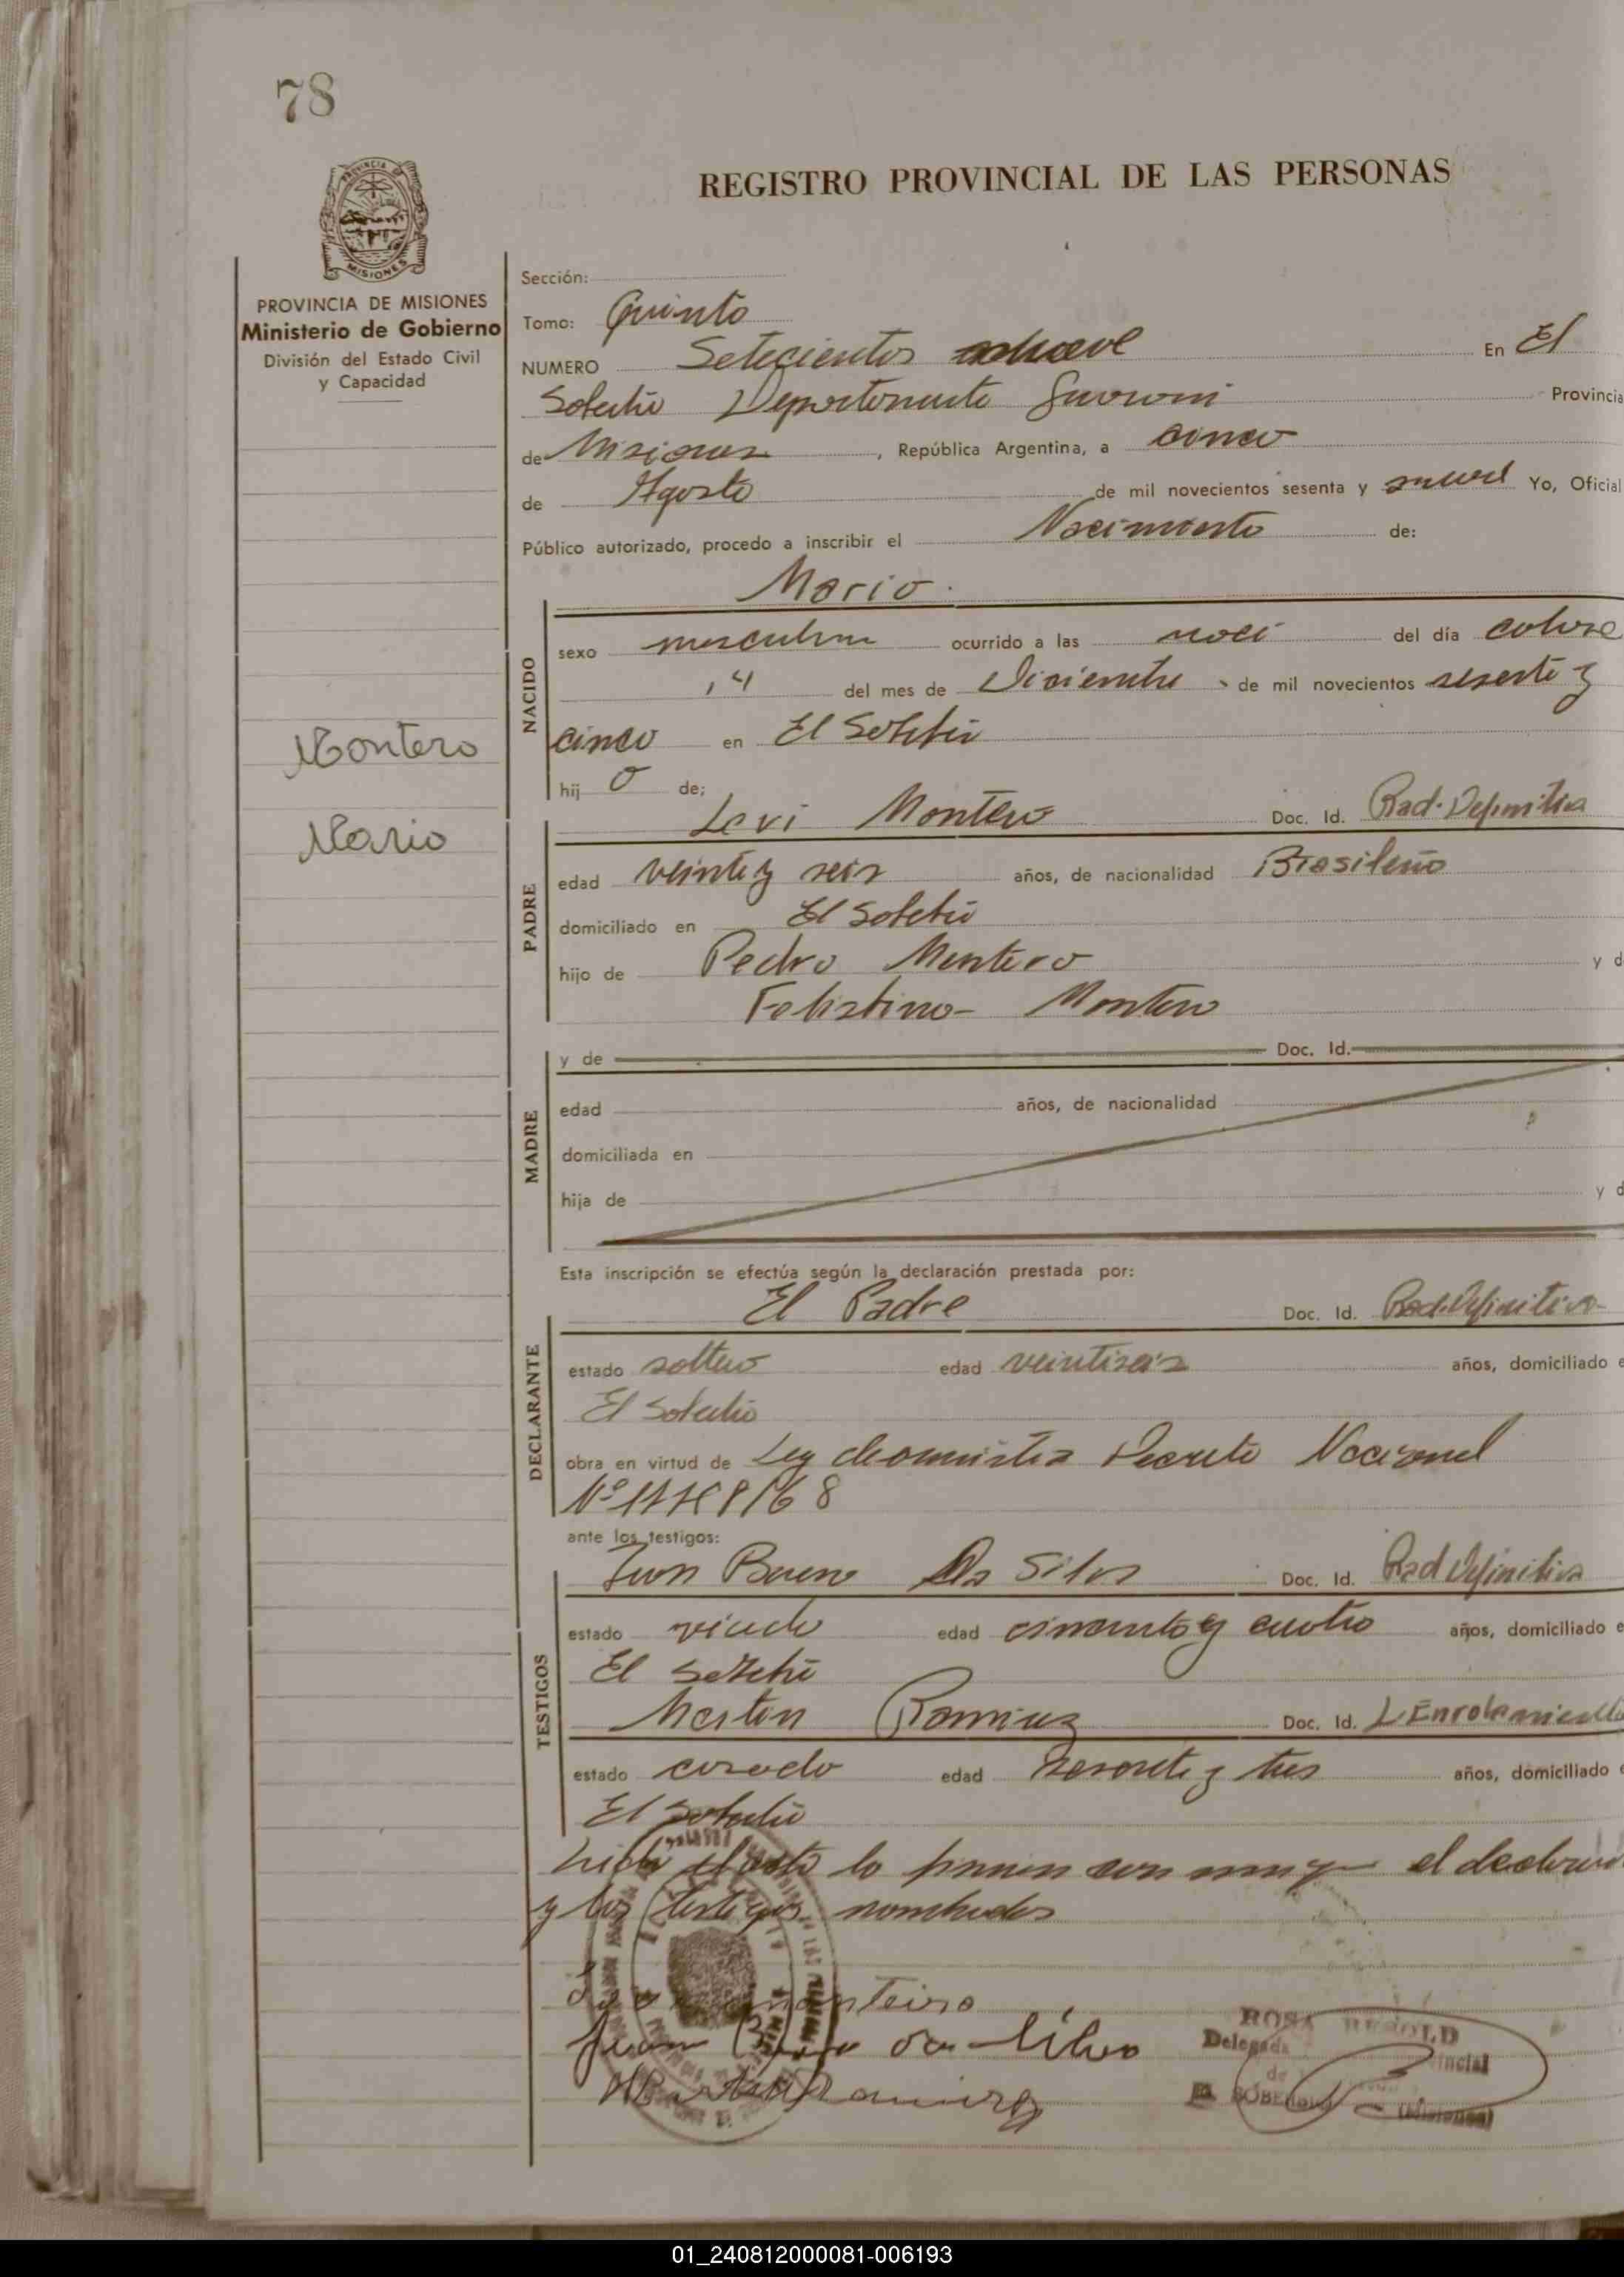 78
PROVINCIA DE
MISIONES
REGISTRO PROVINCIAL DE LAS PERSONAS
PROVINCIA DE MISIONES
Ministerio de Gobierno
División del Estado Civil
y Capacidad
Montero
Mario
Sección:
Tomo: Quinto
NUMERO Setecientos En El
Soberbio Departamento Guarani Provincia
de Misiones, República Argentina, a cinco
de Agosto de mil novecientos sesenta y nueve Yo, Oficial
Público autorizado, procedo a inscribir el Nacimiento de:
Mario
NACIDO
sexo masculino ocurrido a las del día catorce
14 del mes de Diciembre de mil novecientos sesenta y
cinco en El Soberbio
hij o de:
PADRE
Levi Montero Doc. Id. Rad. Definitiva
edad veinte y seis años, de nacionalidad Brasileño
domiciliado en El Soberbio
hijo de Pedro Montero y d
Montero
MADRE
y de Doc. Id.
edad años, de nacionalidad
domiciliada en
hija de y d
Esta inscripción se efectúa según la declaración prestada por:
El Padre Doc. Id. Rad. Definitiva
DECLARANTE
estado soltero edad veintiseis años, domiciliado e
El Soberbio
obra en virtud de Ley de amnistia Decreto Nacional
Nº
ante los testigos:
TESTIGOS
Juan Bueno Da Silva Doc. Id. Rad Definitiva
estado viudo edad cincuenta y cuatro años, domiciliado e
El Soberbio
Martin Ramirez Doc. Id. L Enrolamiento
estado casado edad y tres años, domiciliado e
El Soberbio
Leida el acta lo firman con migo el declarante
y los testigos nombrados
monteiro
Juan Bueno da Silva
Martin Ramirez
ROSA
Delegada
de
(Misiones)
01_240812000081-006193